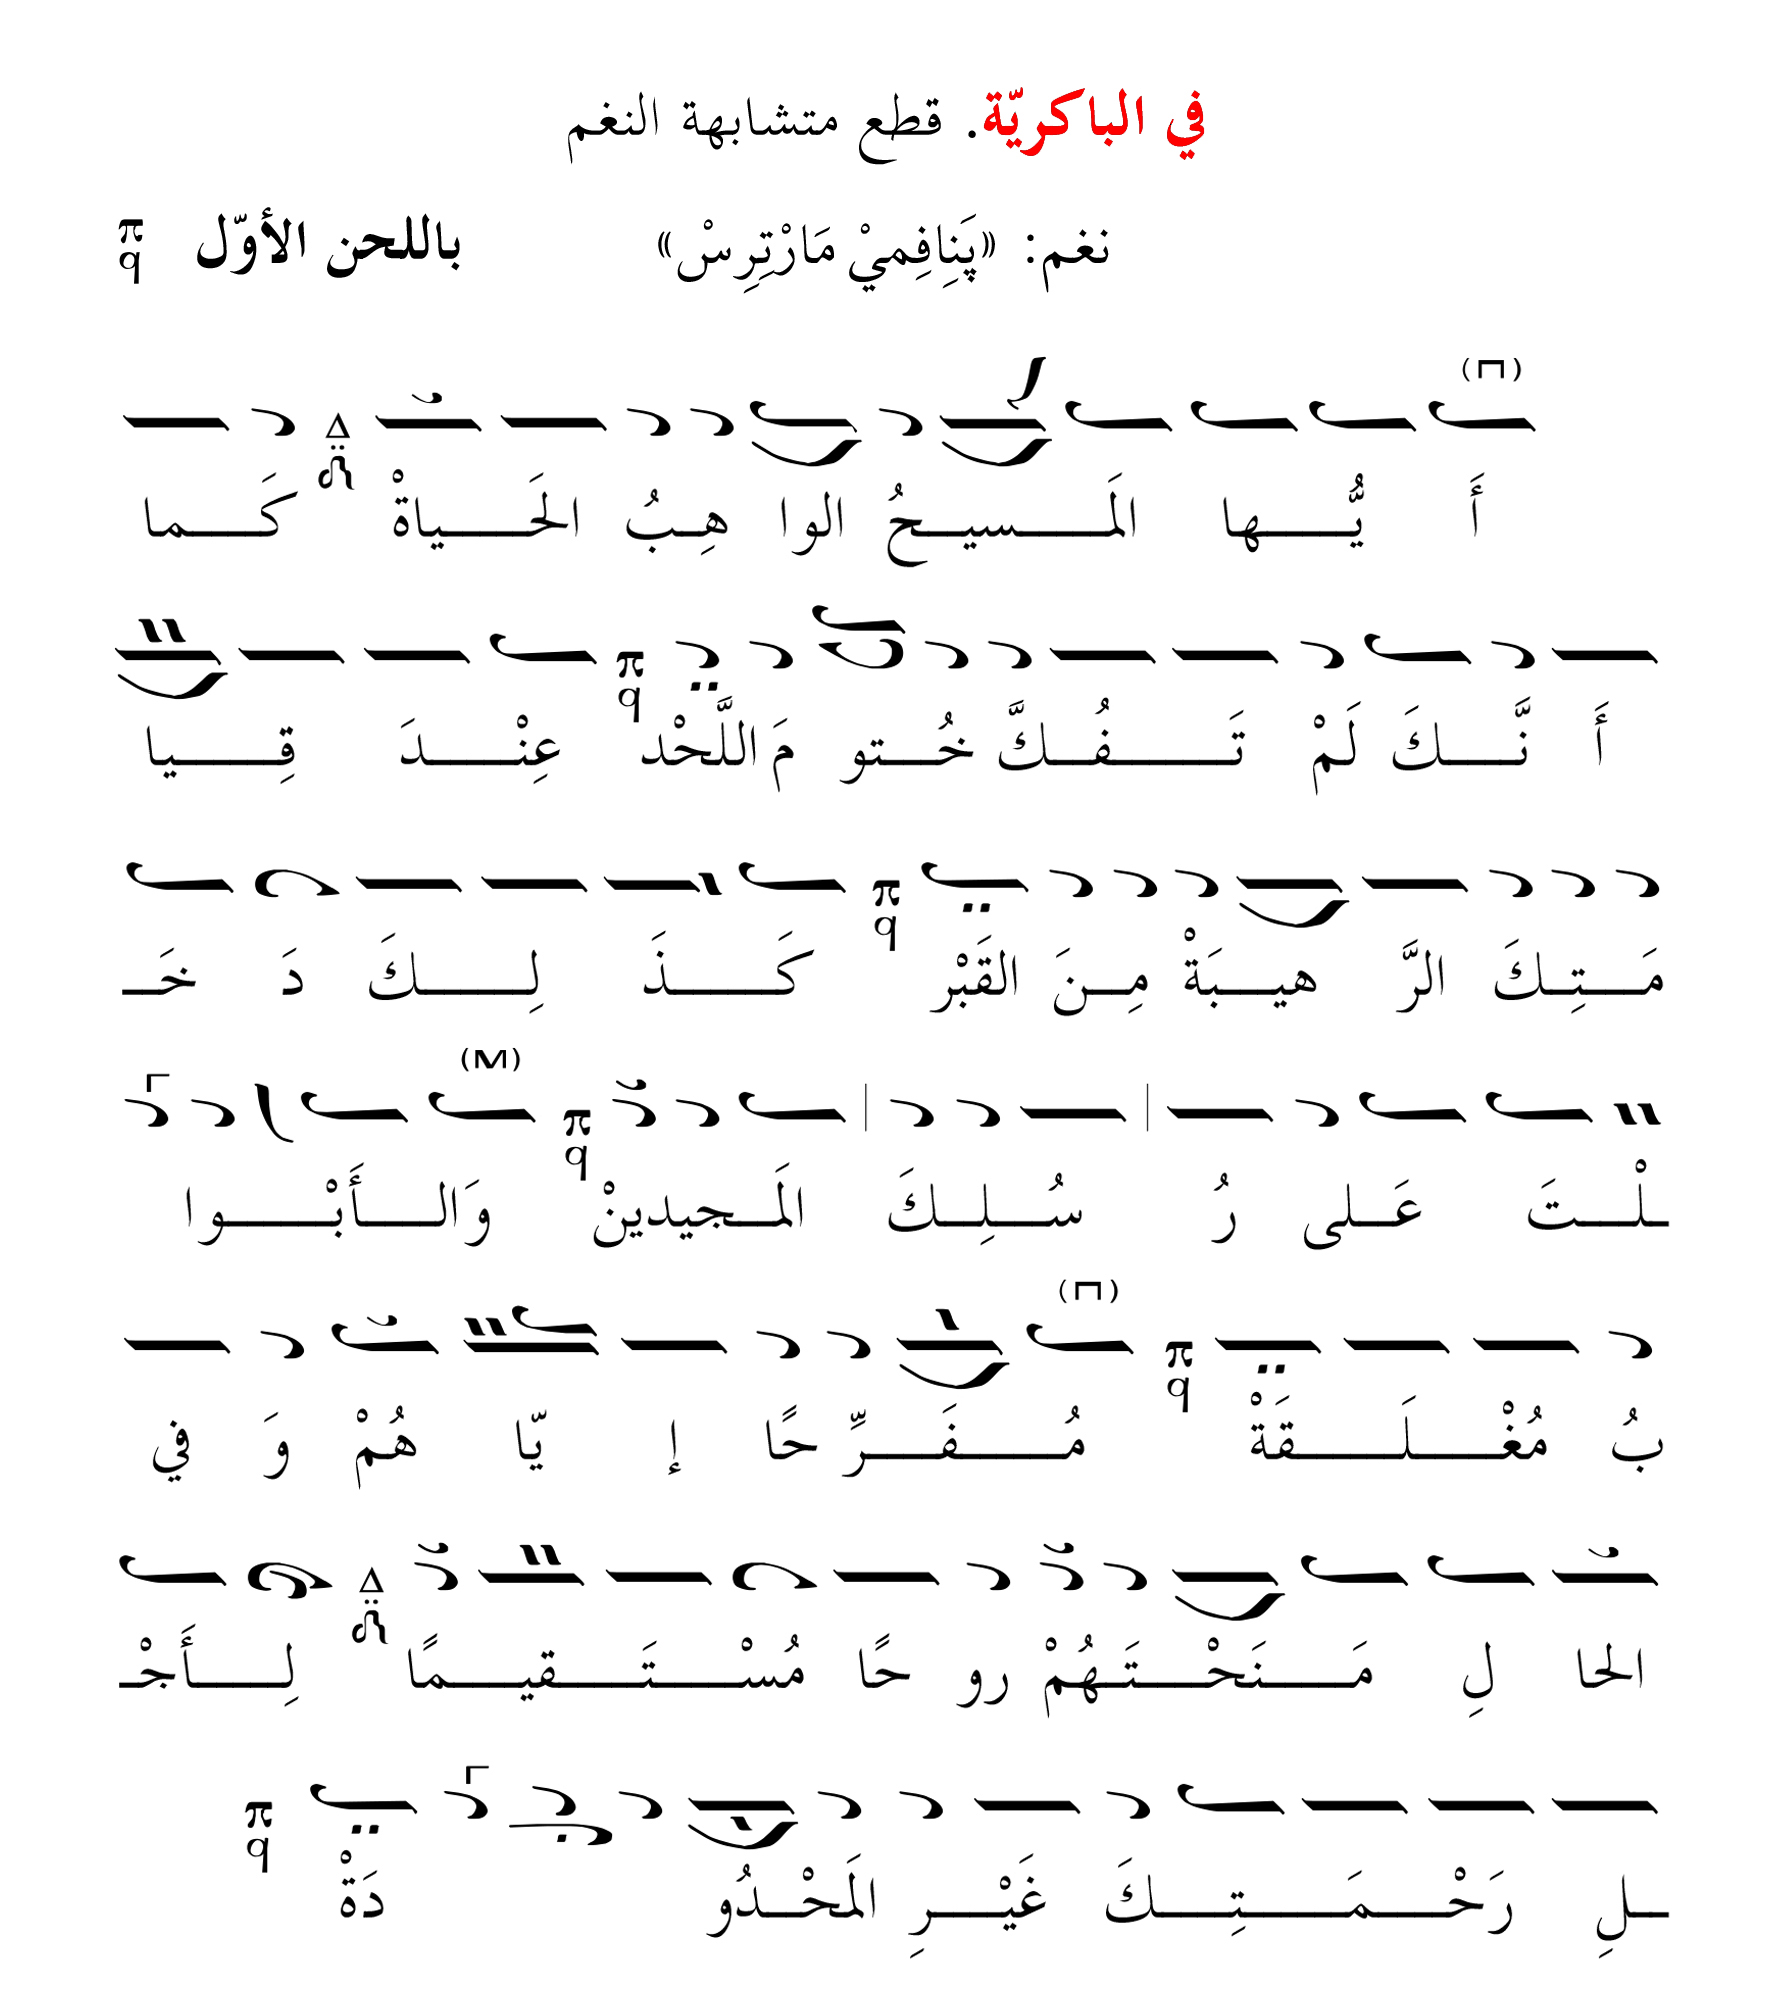 في الباكريّة. قطع متشابهة النغم
نغم: «پَنِافِميْ مَارْتِرِسْ» باللحن الأوّل π q
(Π)
Δ
أَ يُّـــها المَـــسيـــحُ الوا هِـبُ الحَـــياةْ كَـــما
أَ نَّـــكَ لَمْ تَـــفُـــكَّ خُـــتو مَ اللَّحْد عِنْـــدَ قِـــيا
π q
مَـــتِـــكَ الرَّ هيـــبَةْ مِـــنَ القَبْر كَـــذَ لِـــكَ دَ خَـ
π q
(M) Γ
ـلْـــتَ عَـــلى رُ سُـــلِـــكَ المَـــجيدينْ وَالـــأَبْـــوا
π q
(Π)
بُ مُغْـــلَـــقَةْ مُـــفَـــرِّ حًا إ يّا هُمْ وَ في
π q
الحا لِ مَـــنَحْـــتَـــهُمْ رو حًا مُسْـــتَـــقيـــمًا لِـــأَجْـ
Δ
Γ
ـلِ رَحْـــمَـــتِـــكَ غَيْـــرِ المَحْـــدُو دَةْ
π q